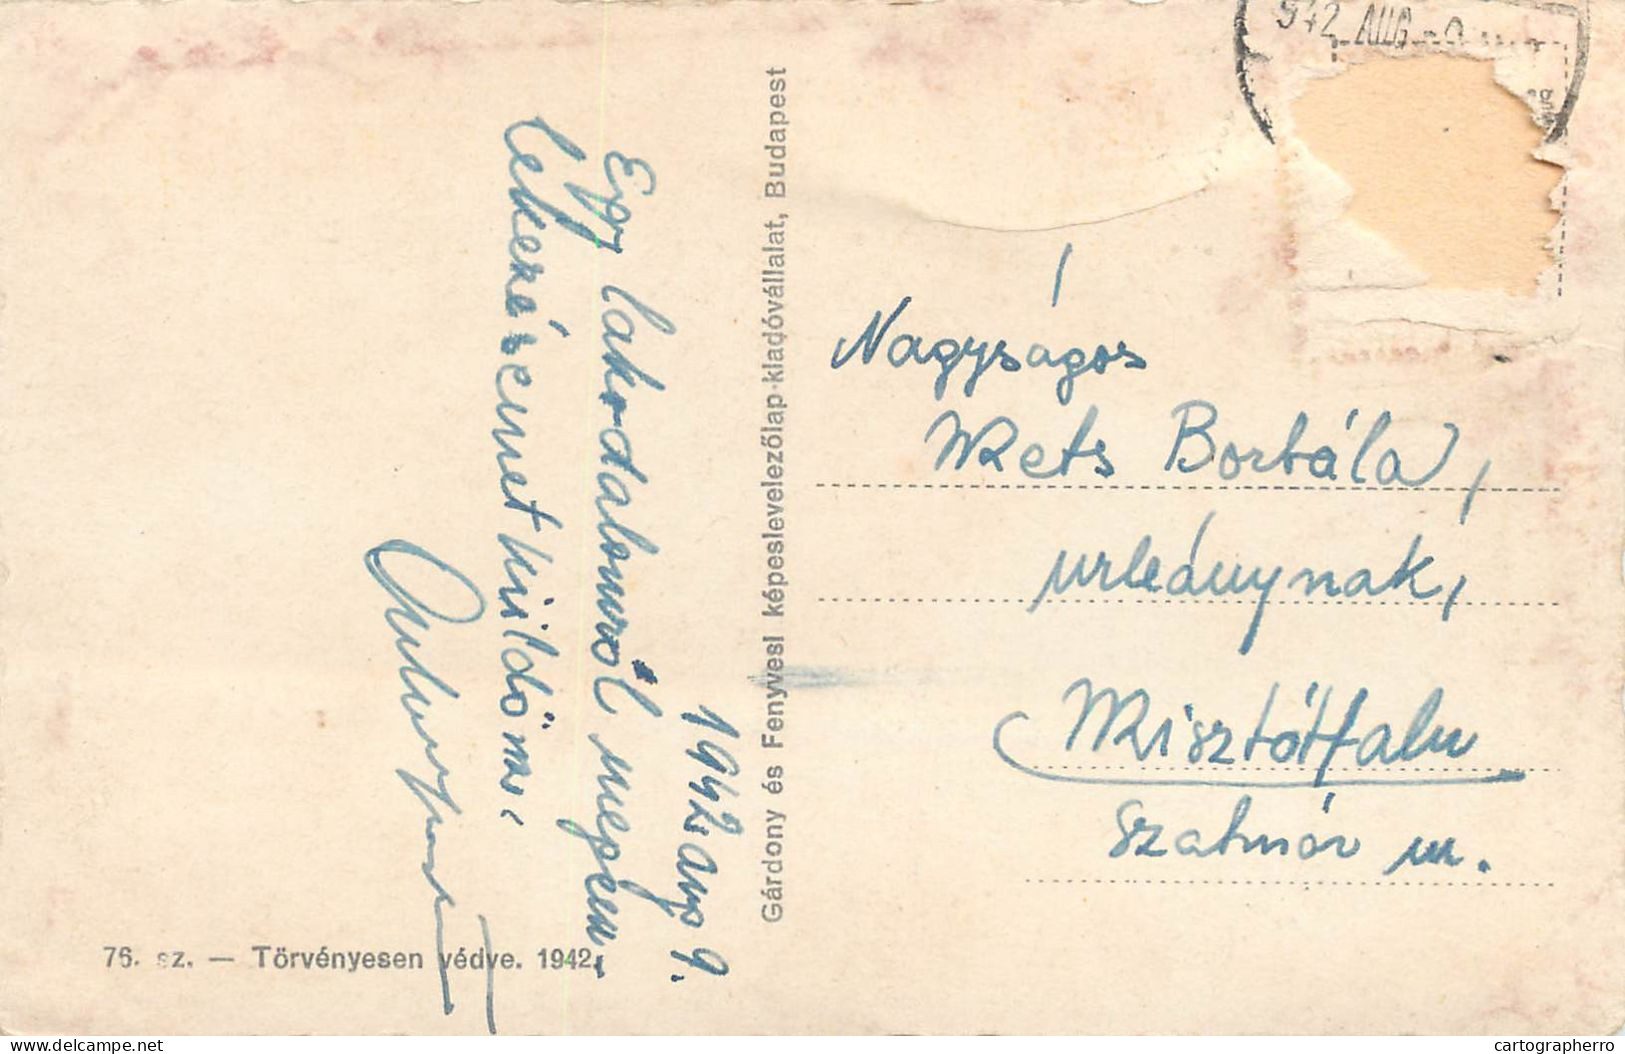 1942 aug 9.
Egy lakodalomról megéem.
lékezésemet küldöm:
Nagyságos
Mets Borbála,
urleánynak,
Misztótfalu
Szatmár m.
942 AUG
Gárdony és Fenyvesi képeslevelezőlap-kiadóvállalat, Budapest
76. sz. — Törvényesen védve. 1942.
delcampe.net
cartographerro